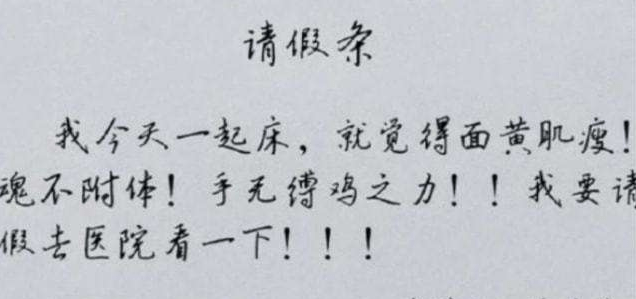 请假条
我今天一起床，就觉得面黄肌瘦！
魂不附体！手无缚鸡之力！！我要请
假去医院看一下！！！